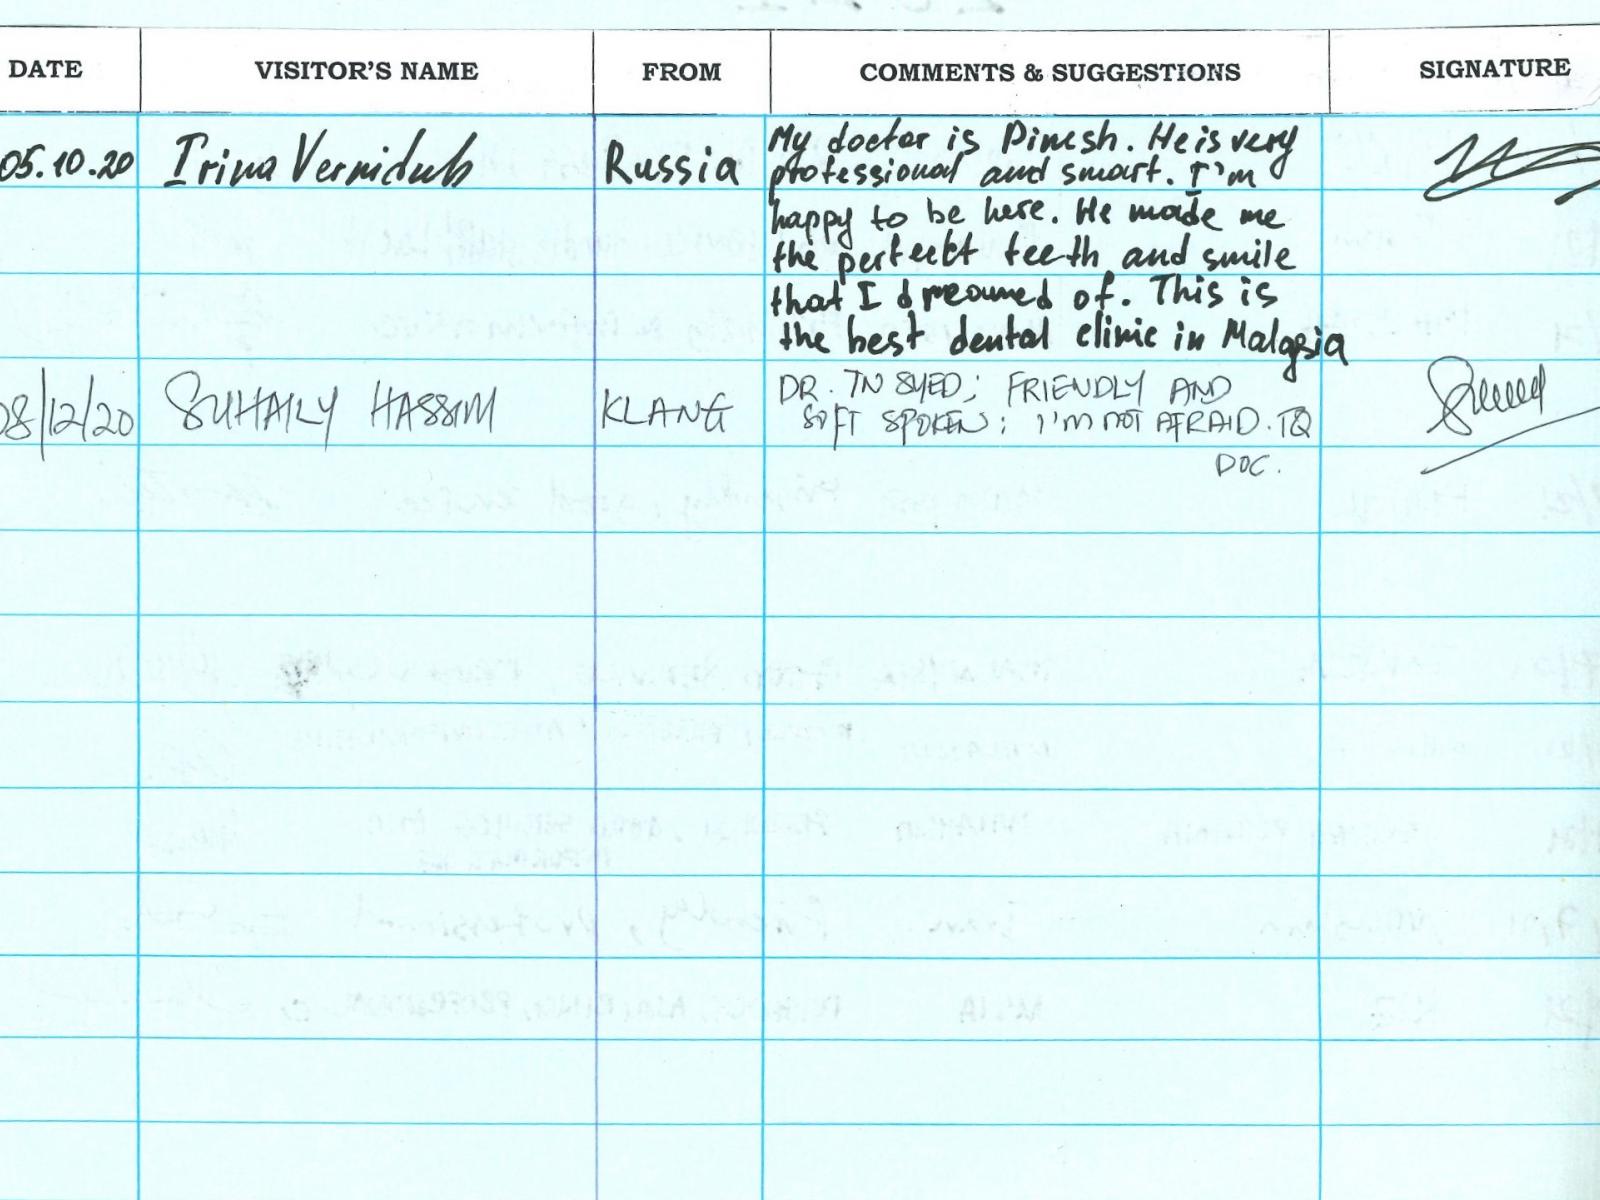 DATE VISITOR'S NAME FROM COMMENTS & SUGGESTIONS SIGNATURE
05.10.20 Irina Vernidub Russia My doctor is Dinesh. He is very
professional and smart. I'm
happy to be here. He made me
the perfect teeth and smile
that I dreamed of. This is
the best dental clinic in Malaysia
08/12/20 SUHAILY HASSIM KLANG DR. TN SYED; FRIENDLY AND
SOFT SPOKEN; I'M NOT AFRAID. TQ
DOC.